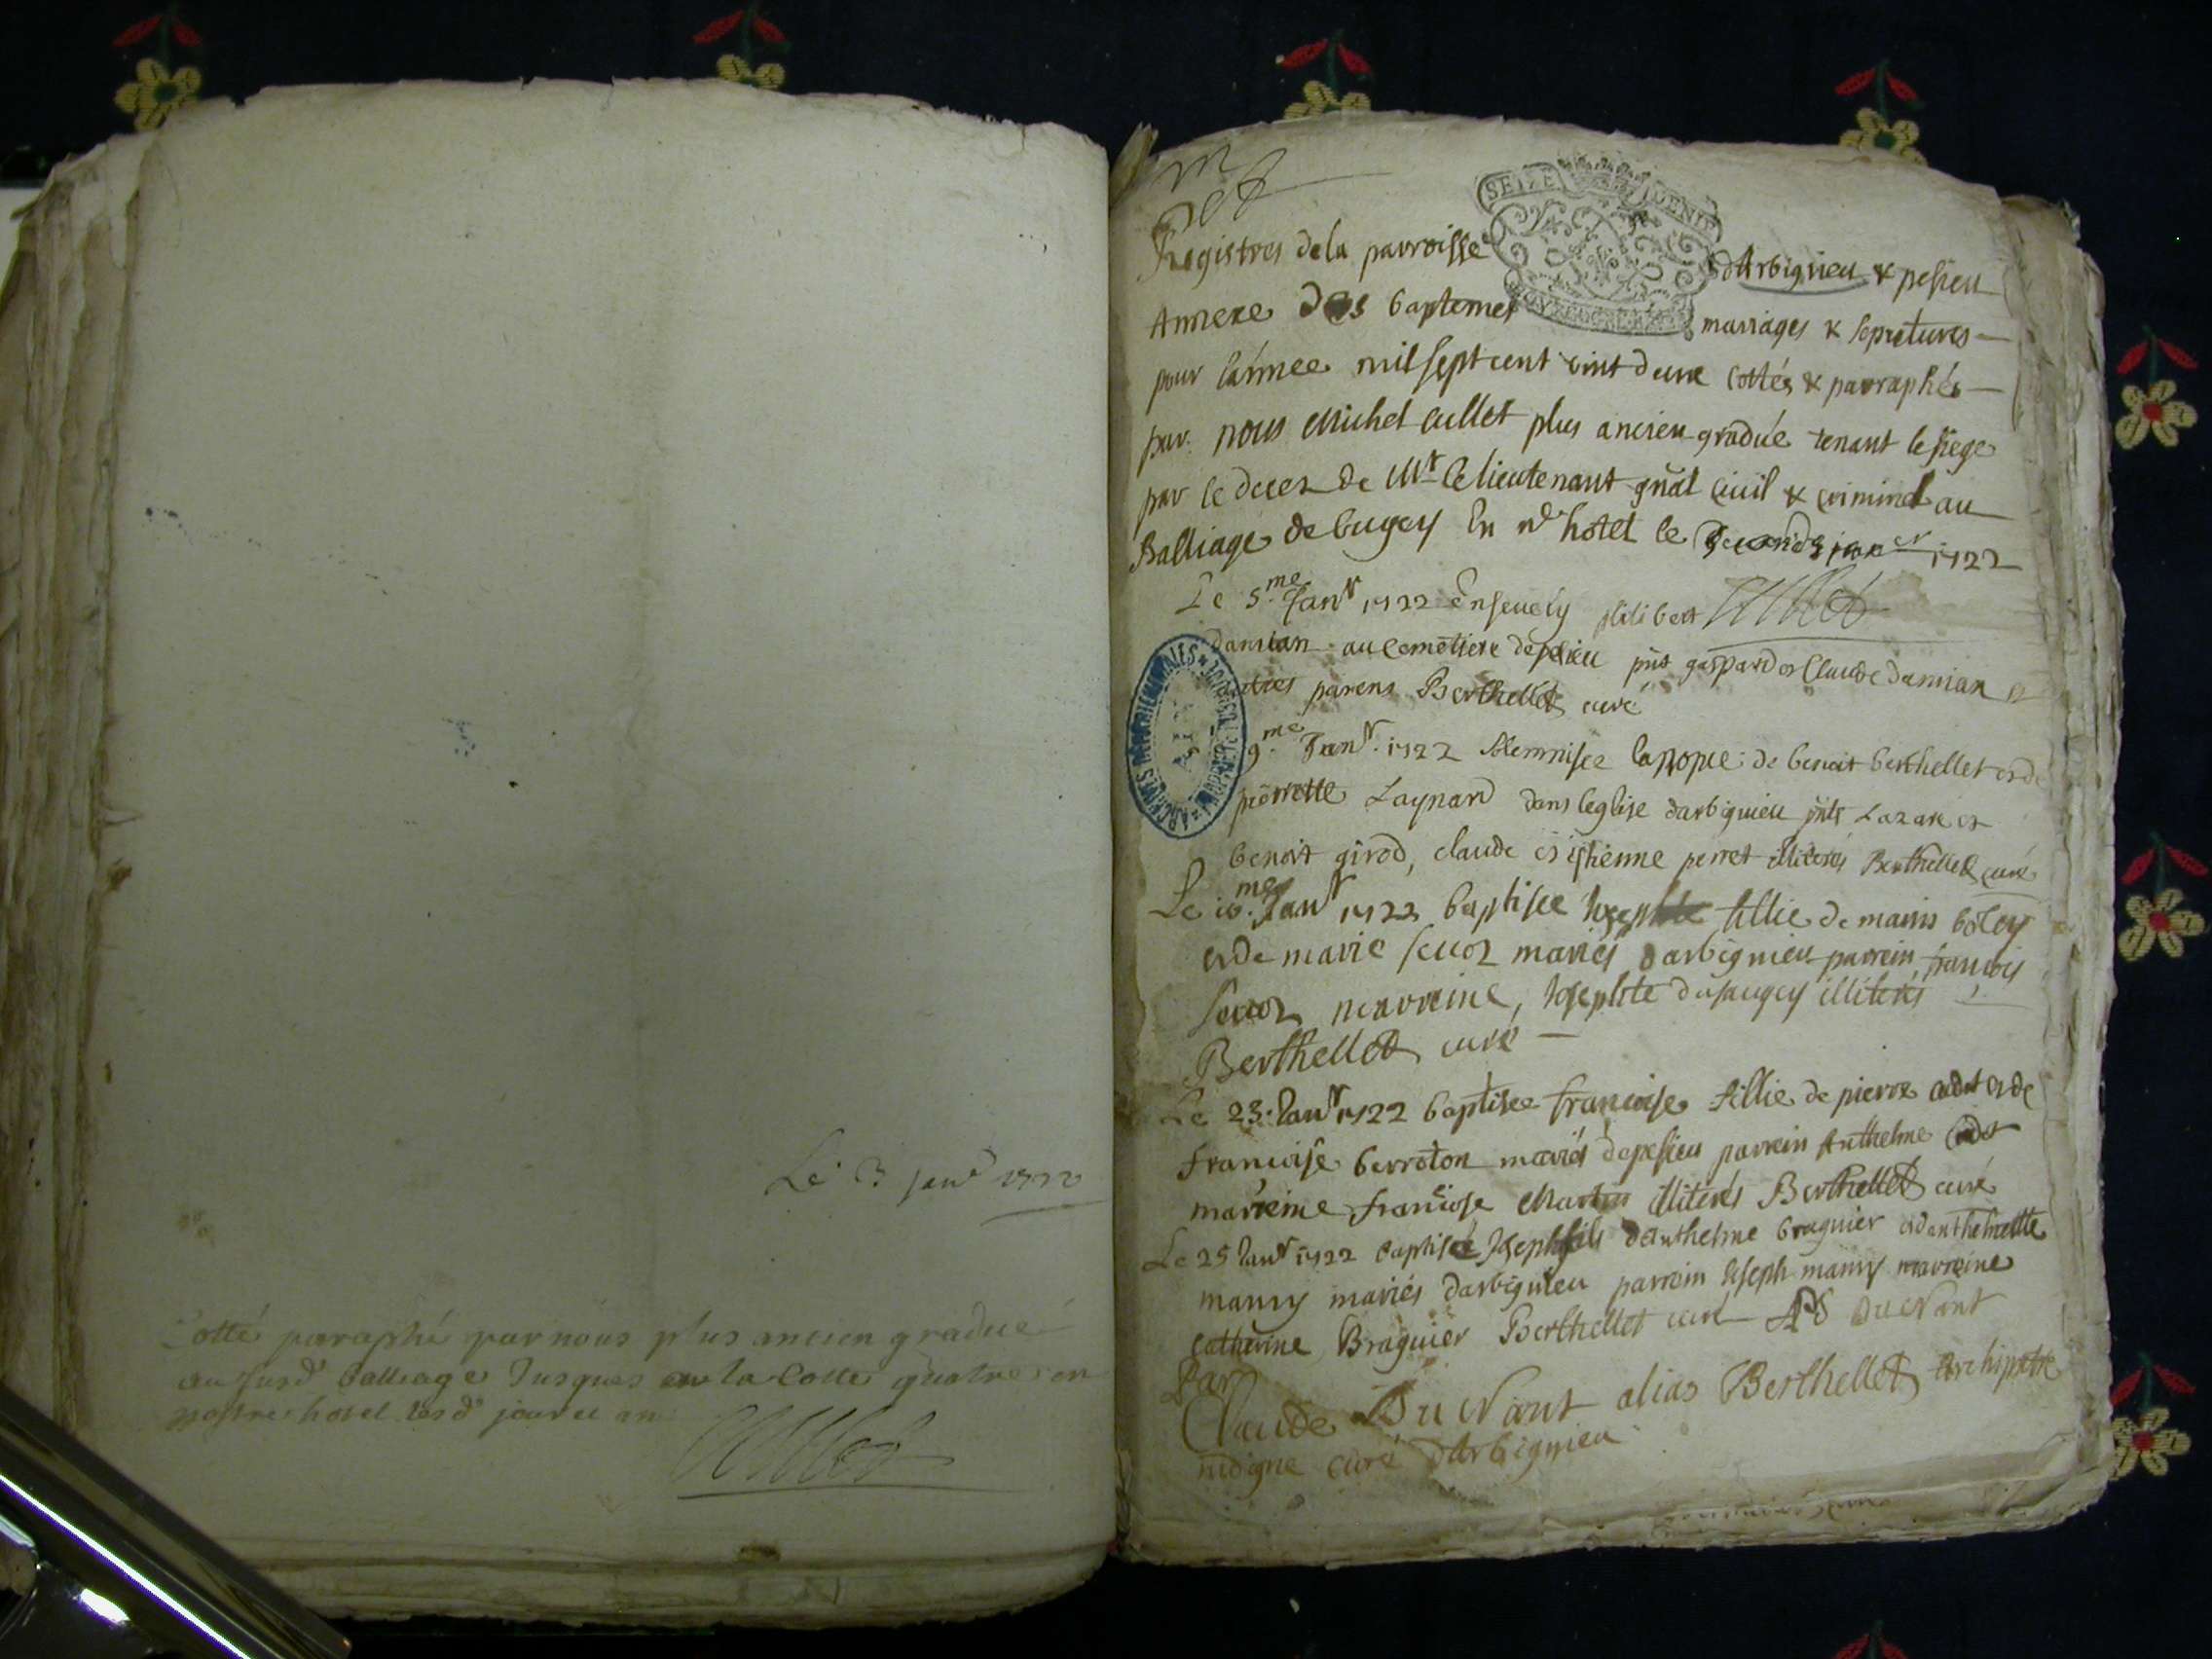 Le 3 janv 1722
Cotté paraphé par nous plus ancien gradué
au susd balliage Jusques a la Cotte quatre en
nostre hotel lesd jour et an
Cullet
SEIZE DENIE
Registres de la parroisse dArbignieu & pesieu
Annexe Des baptemes mariages & sepretures
pour lánnee mil sept cent vint deux cottés & parraphés
par nous Michel Cullet plus ancien gradué tenant le siege
par le deces de Mr le lieutenant gñal Civil & criminel au
Balliage de bugey En nd hotel le 1722
Le 5.me Janr 1722 Enseuely philibert Cullet
damian au cemetiere depesieu pñs gaspard et Claude damian et
parens Berthellet curé
9.me Janr. 1722 solemnisee de benoit berthellet et de
pierrette Laynard dans leglise darbignieu pñts Lazare et
benoit girod, claude et estienne perret illiterés Berthellet curé
Le 10.me Janr 1722 baptisee Josephte fillie de
et de marie mariés darbignieu parrein françois
marreine, Josephte dusaugey illiterés
Berthellet curé
Le 23. Janr 1722 baptisee francoise fillie de pierre cadet et de
francoise berroton mariés depesieu parrein Anthelme Cadet
marreine francoise Martin illiterés Berthellet curé
Le 25 Janr 1722 baptisé Joseph fils dAnthelme braguier et danthelmette
mamy mariés darbignieu parrein Joseph mamy marreine
catherine Braguier Berthellet curé Du Nant
Par
Claude Du Nant alias Berthellet Archipretre
indigne curé dArbignieu
ARCHIVES DEPARTEMENTALES
AIN